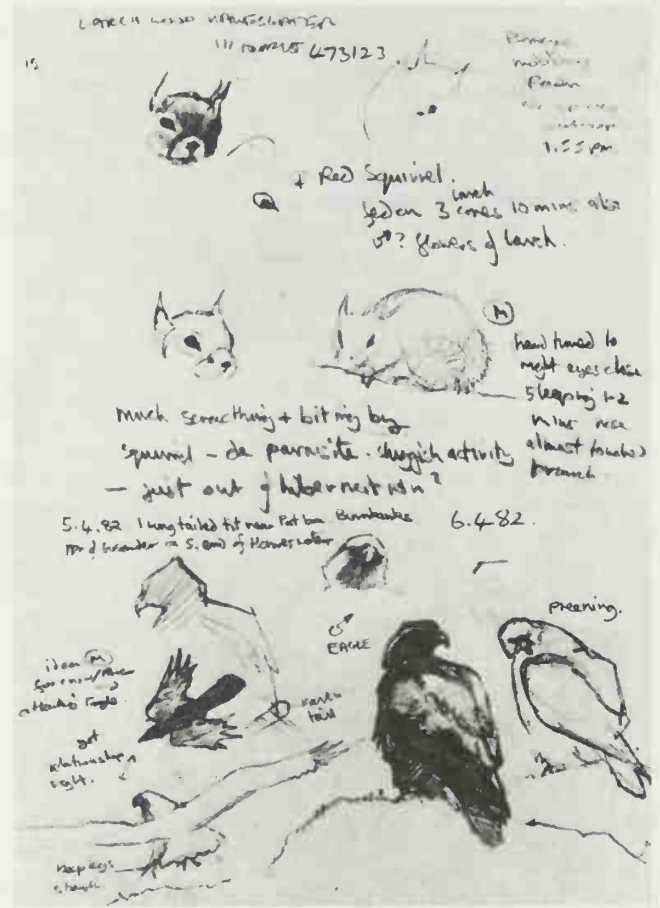 LARCH WOOD HAWESWATER
473123
15
1.55 pm
Red Squirrel.
larch
fed on 3 cones 10 mins also
♂? flowers of larch.
M
head turned to
right eyes close
sleeping 1-2
mins nose
almost touched
branch.
much scratching + biting by
squirrel - de parasite. sluggish activity
- just out of hibernation?
5.4.82 1 long tailed tit near Burnbanks
S. end of Haweswater
6.4.82.
♂
EAGLE
preening.
idea M
attacking Eagle.
raven
tail
get
relationship
right.
keep legs